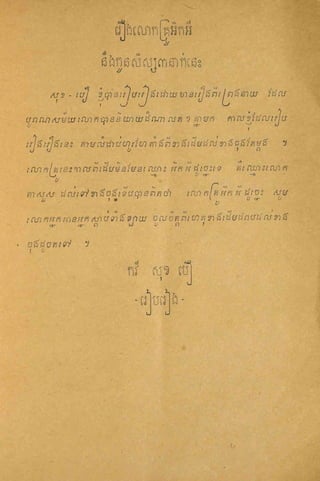 រឿងលោកគ្រូអិកអី
នឹងកូនសិស្ស៣នាក់នេះ
សុខ - បឿ ខ្ញុំបានរៀបរៀងដោយមានរឿងពីព្រេងនាយ ដែល
បុរាណសម័យលោកបាននិយាយដំណាលតៗគ្នាមក កាលខ្ញុំដែលរៀប
រៀងរឿងនេះ តាមលំដាប់ហូរហែតាំងពីខាងដើមដល់ខាងចុងតែម្ដង ។
លោកគ្រូនេះកាលពីដើមមិនមែនឈ្មោះ អិកអីដូច្នេះទេ គឺឈ្មោះលោក
តាសួស ដល់ទៅខាងចុងទើបបានពិតថា លោកគ្រូអិកអីដូច្នេះ សូម
លោកអ្នកអានអ្នកស្ដាប់ទាំងឡាយ ចូលចិត្តពីហេតុខាងដើមដរាបដល់ខាង
ចុងដូចតទៅ ។
កវី សុខ បឿ
- រៀបរៀង -